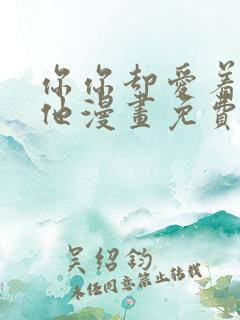 你你却愛着
他漫畫免費
吴绍钧
未经同意禁止转载